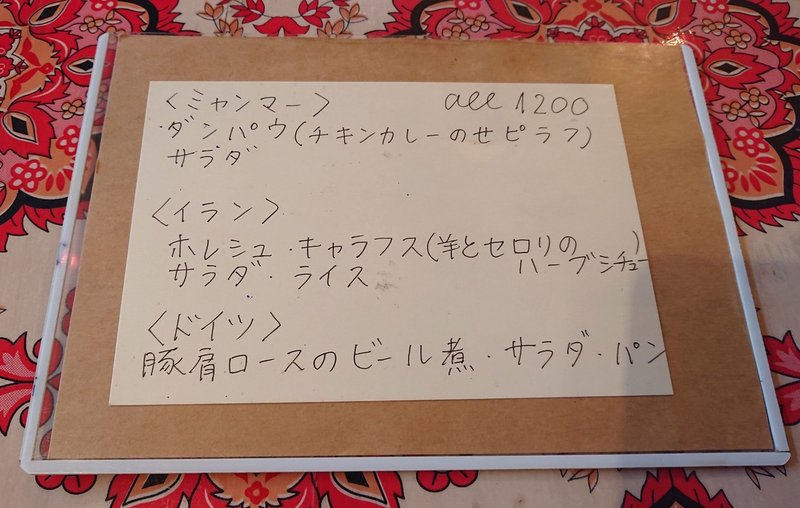 〈ミャンマー〉 all 1200
・ダンパウ(チキンカレーのせピラフ)
サラダ
〈イラン〉
ホレシュ・キャラフス(羊とセロリの
ハーブシチュー)
サラダ・ライス
〈ドイツ〉
豚肩ロースのビール煮・サラダ・パン